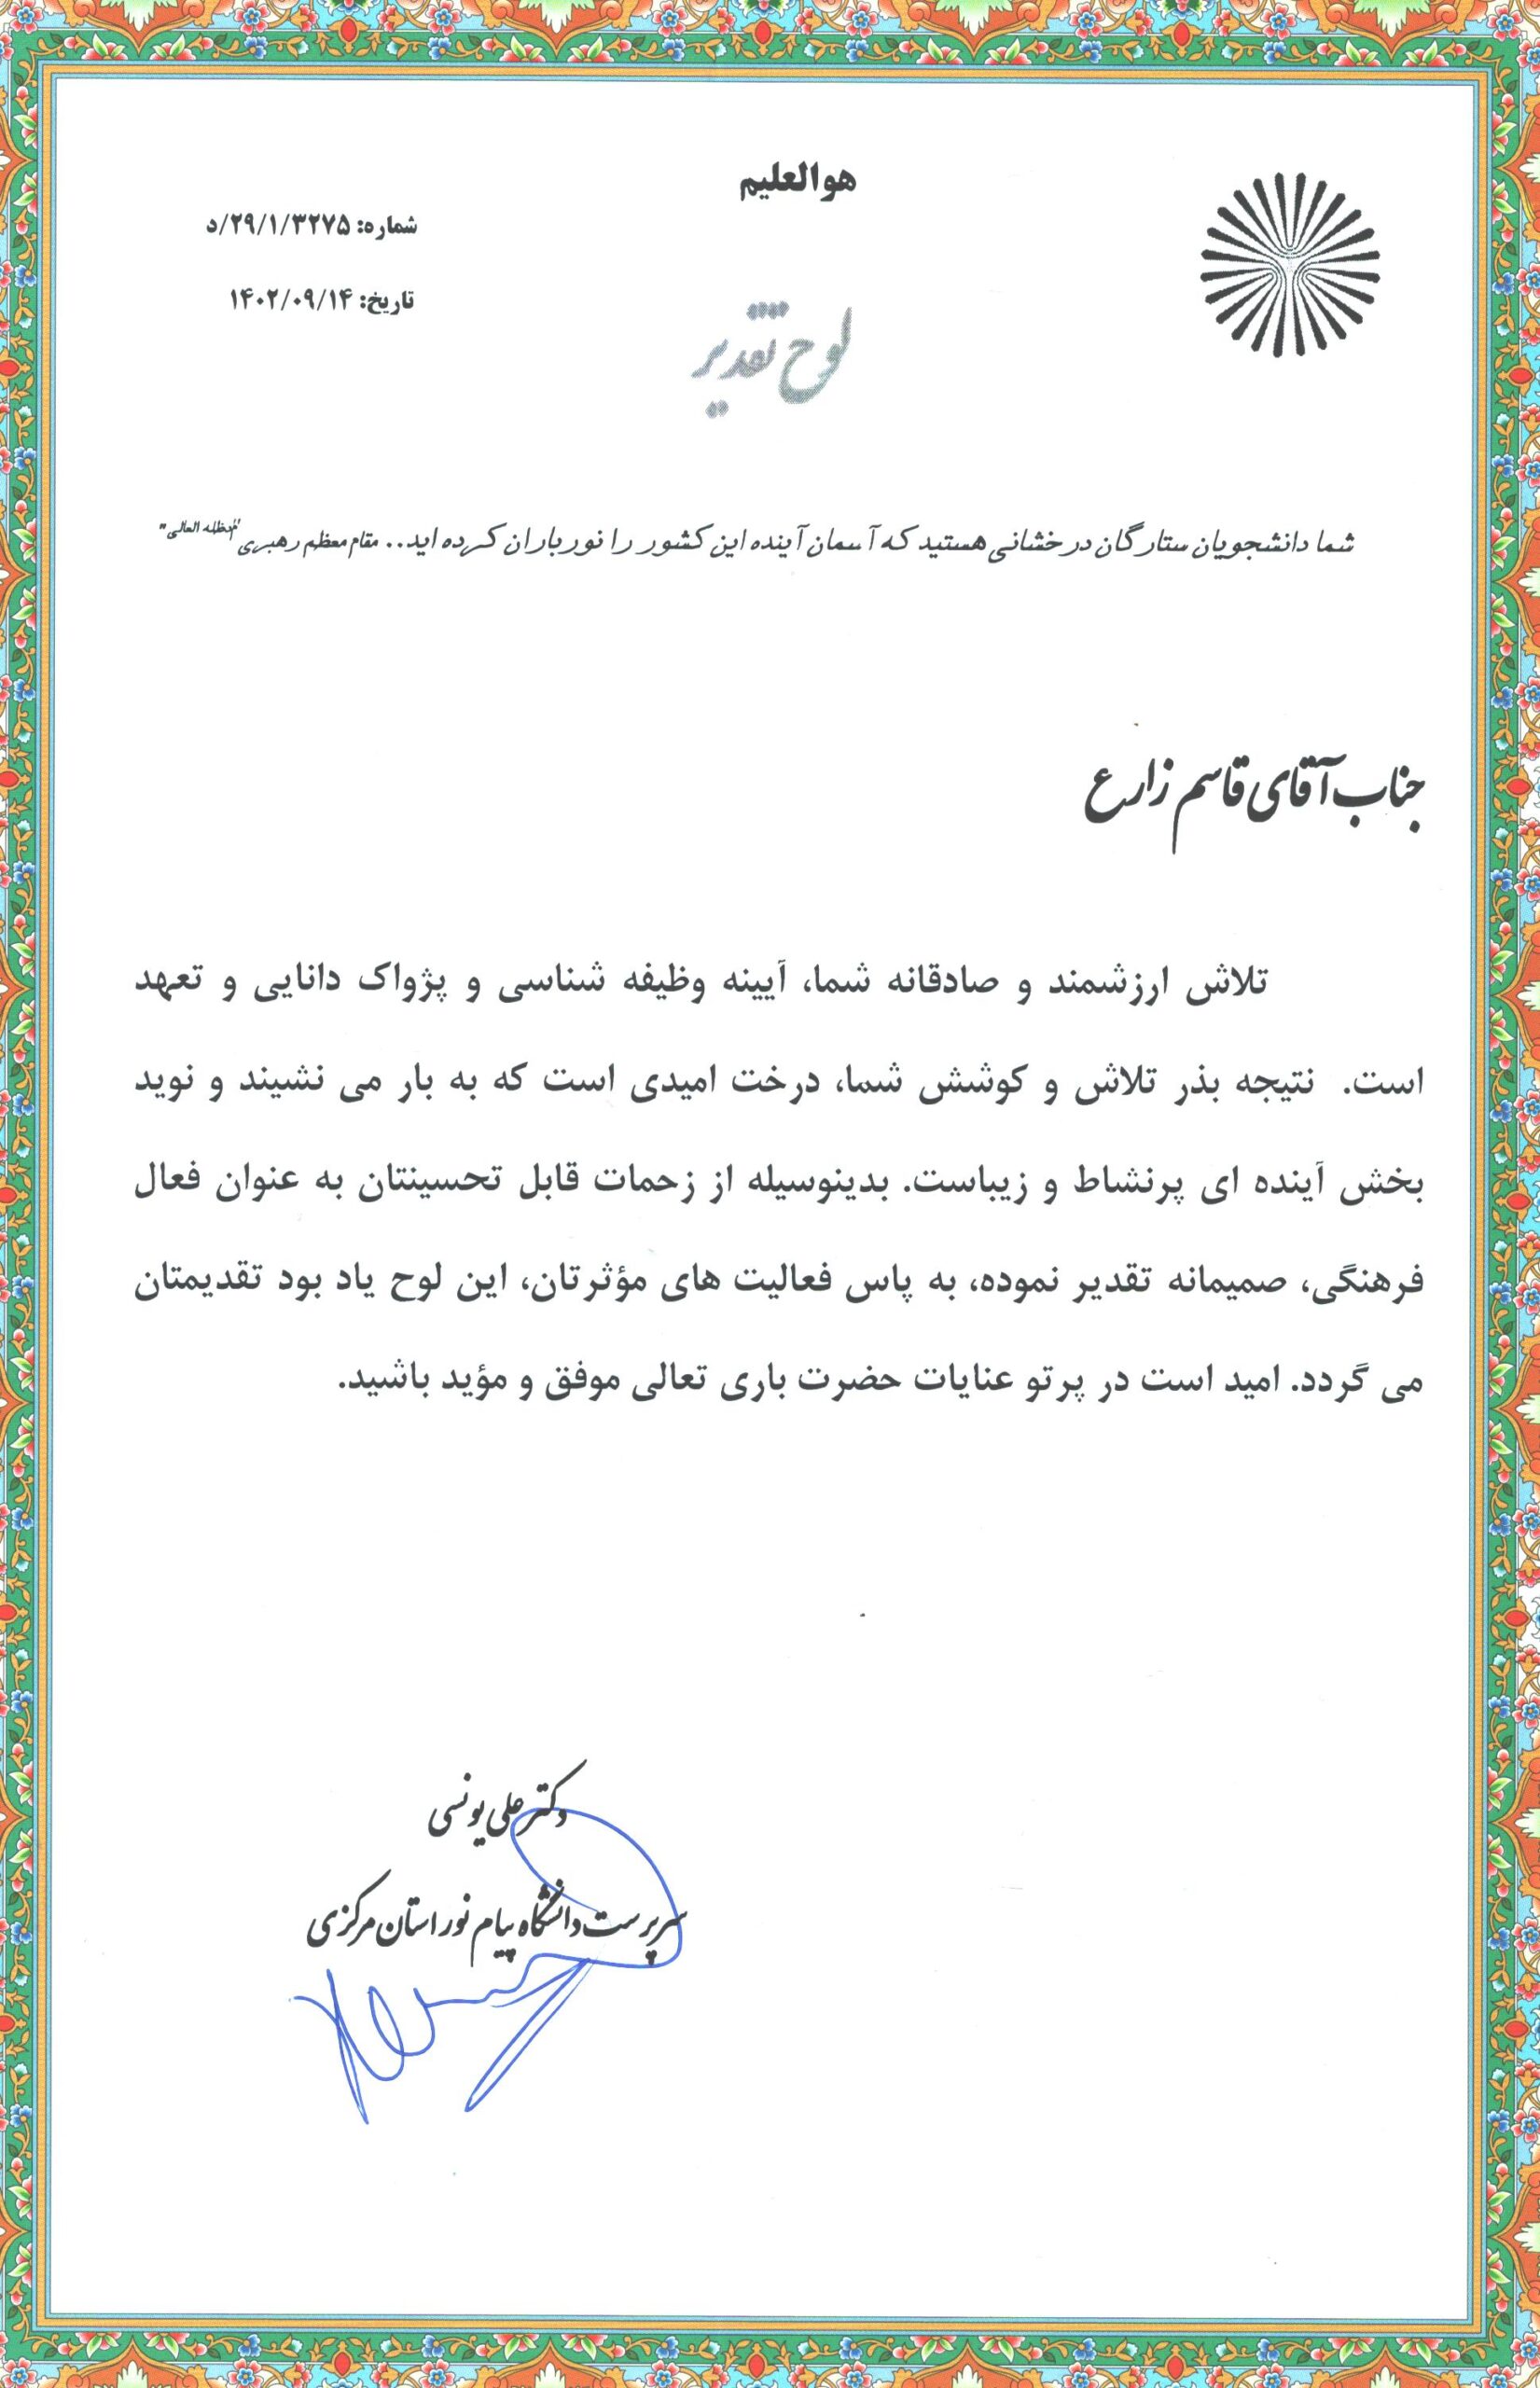 هوالعلیم
شماره: ۲۹/۱/۳۲۷۵/د
تاریخ: ۱۴۰۲/۰۹/۱۴
لوح تقدیر
شما دانشجویان ستارگان درخشانی هستید که آسمان آینده این کشور را نورباران کرده اید... مقام معظم رهبری "مدظله العالی"
جناب آقای قاسم زارع
تلاش ارزشمند و صادقانه شما، آیینه وظیفه شناسی و پژواک دانایی و تعهد
است. نتیجه بذر تلاش و کوشش شما، درخت امیدی است که به بار می نشیند و نوید
بخش آینده ای پرنشاط و زیباست. بدینوسیله از زحمات قابل تحسینتان به عنوان فعال
فرهنگی، صمیمانه تقدیر نموده، به پاس فعالیت های مؤثرتان، این لوح یاد بود تقدیمتان
می گردد. امید است در پرتو عنایات حضرت باری تعالی موفق و مؤید باشید.
دکتر علی یونسی
سرپرست دانشگاه پیام نور استان مرکزی